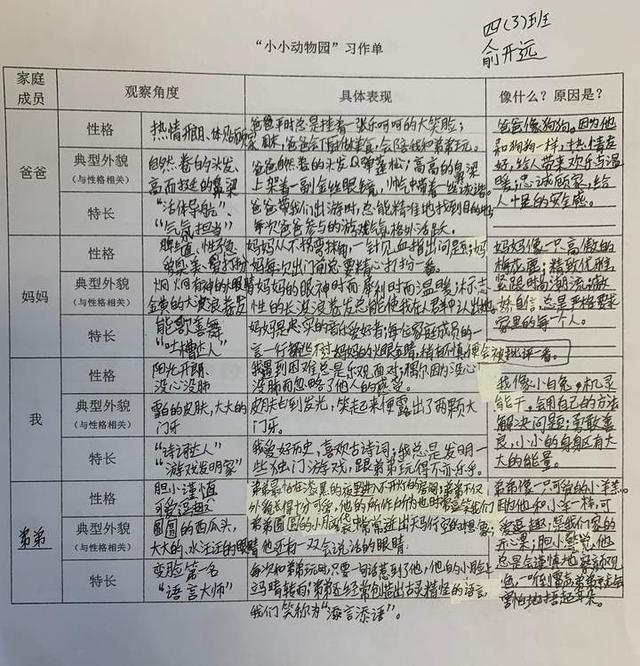 四(3)班
俞开远
“小小动物园”习作单
家庭成员 观察角度 具体表现 像什么？原因是？
爸爸
性格
热情开朗、体贴顾家
爸爸平时总是挂着一张乐呵呵的大笑脸；
爸爸会做美食，会陪我和弟弟玩。
典型外貌
(与性格相关)
自然卷的头发、
高而挺的鼻梁
爸爸自然卷的头发蓬松；高高的鼻梁
上架着一副金丝眼镜，
特长
“活体导航”、
“气氛担当”
爸爸带我们出游时，总能精准地找到目的地；
每次爸爸参与的游戏气氛格外活跃。
爸爸像狗狗。因为他
和狗狗一样，热情友
好，给人带来欢乐与温
暖；忠诚顾家，给
人十足的安全感。
妈妈
性格
妈妈从不拐弯抹角，一针见血指出问题；妈
妈每次出门前总要精心打扮一番。
典型外貌
(与性格相关)
炯炯有神的眼睛
金黄的大波浪卷发
妈妈的眼神时而犀利时而温暖；标志
性的长波浪卷发总能使我在人群中认出她。
特长
能歌善舞
“吐槽达人”
妈妈是忠实的音乐爱好者；每位家庭成员的一
言一行都逃不过妈妈的火眼金睛，稍有不慎，便会被批评一番。
妈妈像一只高傲的
梅花鹿；精致优雅，
紧跟时尚潮流；
娇自信，总是严格要求
家里的每一个人。
我
性格
阳光开朗、
没心没肺
我遇到困难总是乐观面对；偶尔因为没心
没肺而忽略了他人的感受。
典型外貌
(与性格相关)
雪白的皮肤，大大的
门牙
皮肤白到发光，笑起来便露出了两颗大
门牙。
特长
“诗词达人”
“游戏发明家”
我爱好历史，喜欢古诗词；我总是发明一
些独门游戏，跟弟弟玩得不亦乐乎。
我像小白兔，机灵
能干，会用自己的方法
解决问题；
良，小小的身躯有大
大的能量。
弟弟
性格
胆小谨慎
可爱逗趣
弟弟最怕在漆黑的夜里进入不开灯的房间；弟弟不仅
外貌长得十分可爱，他的所作所为也时常逗笑我们
典型外貌
(与性格相关)
圆圆的西瓜头，
大大的、水汪汪的眼睛
弟弟圆圆的小脑袋瓜常常迸出天马行空的想象；
他还有一双会说话的眼睛。
特长
变脸第一名
“语言大师”
每次和弟弟玩时，只要一句话惹到了他，他的小脸
立马晴转雨；弟弟还经常创造出古灵精怪的语言，
我们笑称为“海言添语”。
弟弟像一只可爱的小羊羔。
因为他和小羊一样，可
爱逗趣，是我们家的
开心果；胆小警觉，他
总是会谨慎地
害怕地捂起耳朵。